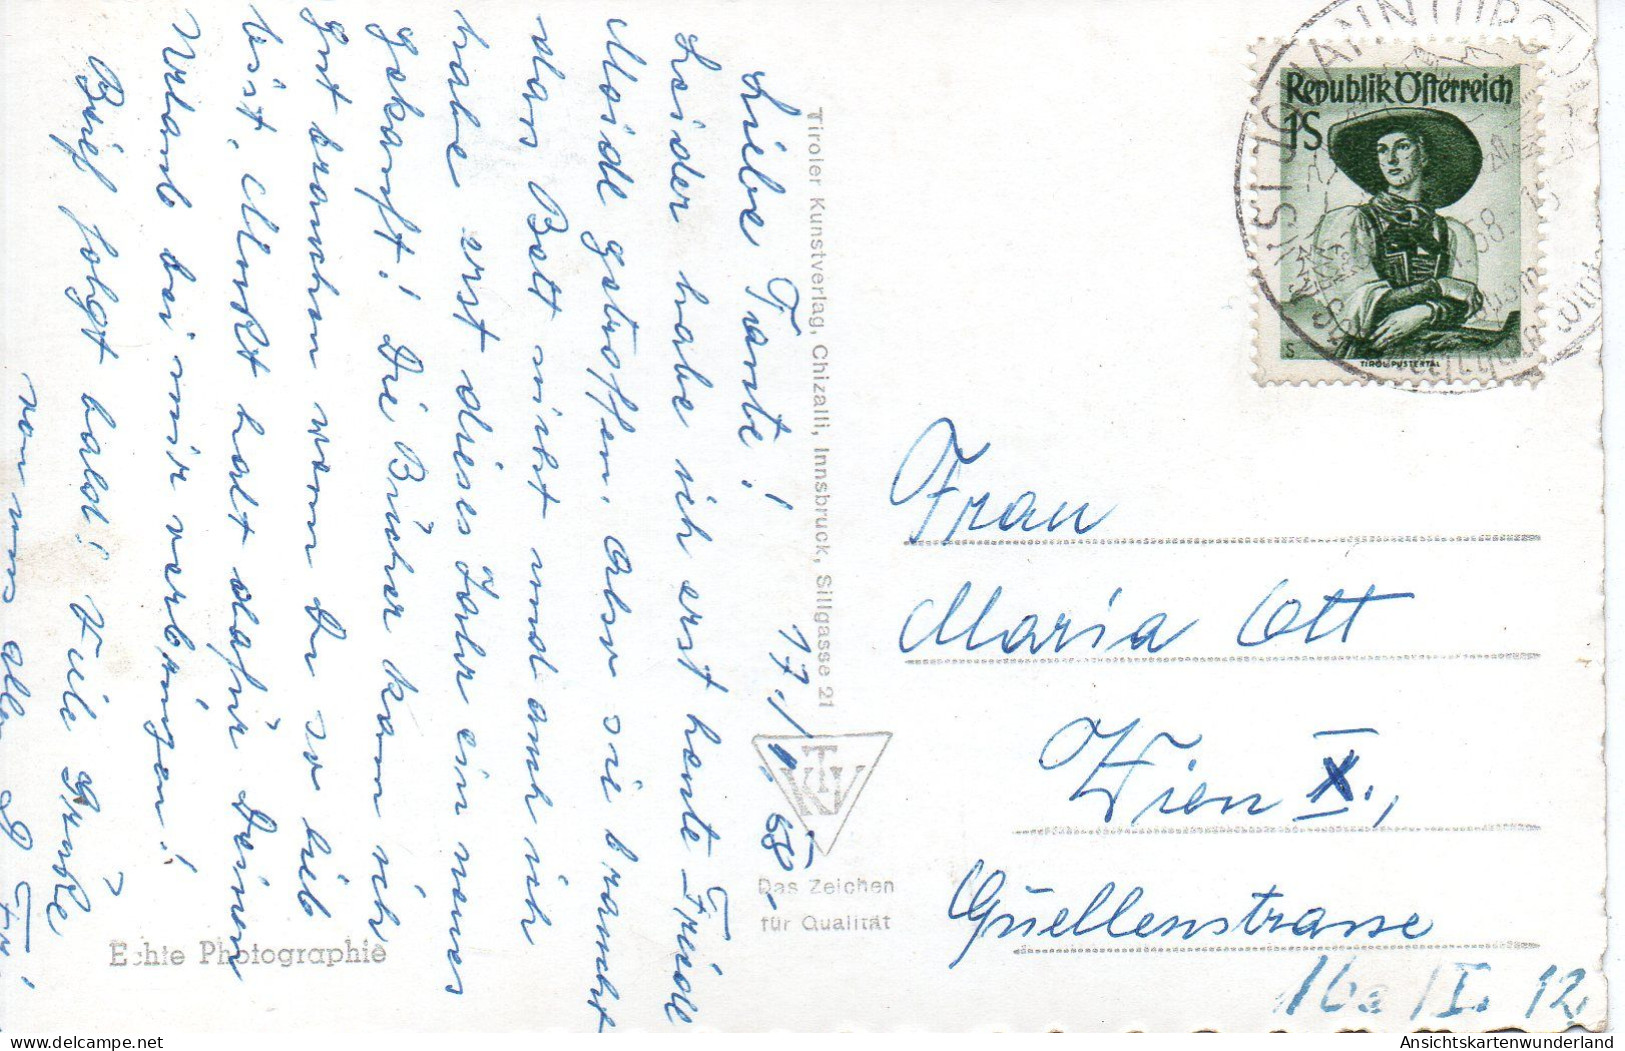 17./1. 58.
Liebe Tante!
Leider habe ich erst heute Friedl
Moidl getroffen. Also sie braucht
das Bett nicht und auch ich
habe erst dieses Jahr ein neues
gekauft! Die Bücher kann ich
gut brauchen wenn Du so lieb
bist. Mockt halt dafür Deinen
Urlaub bei mir verbringen!
Brief folgt bald! Viele Grüße
von uns allen
Echte Photographie
Tiroler Kunstverlag, Chizalli, Innsbruck, Sillgasse 21
TKV
Das Zeichen
für Qualität
Republik Österreich
1S
S
TIROL, PUSTERTAL
ST. JOHANN
Frau
Maria Ott
Wien X.,
Quellenstrasse
16a /I. 12.
AnsichtskartenWunderland